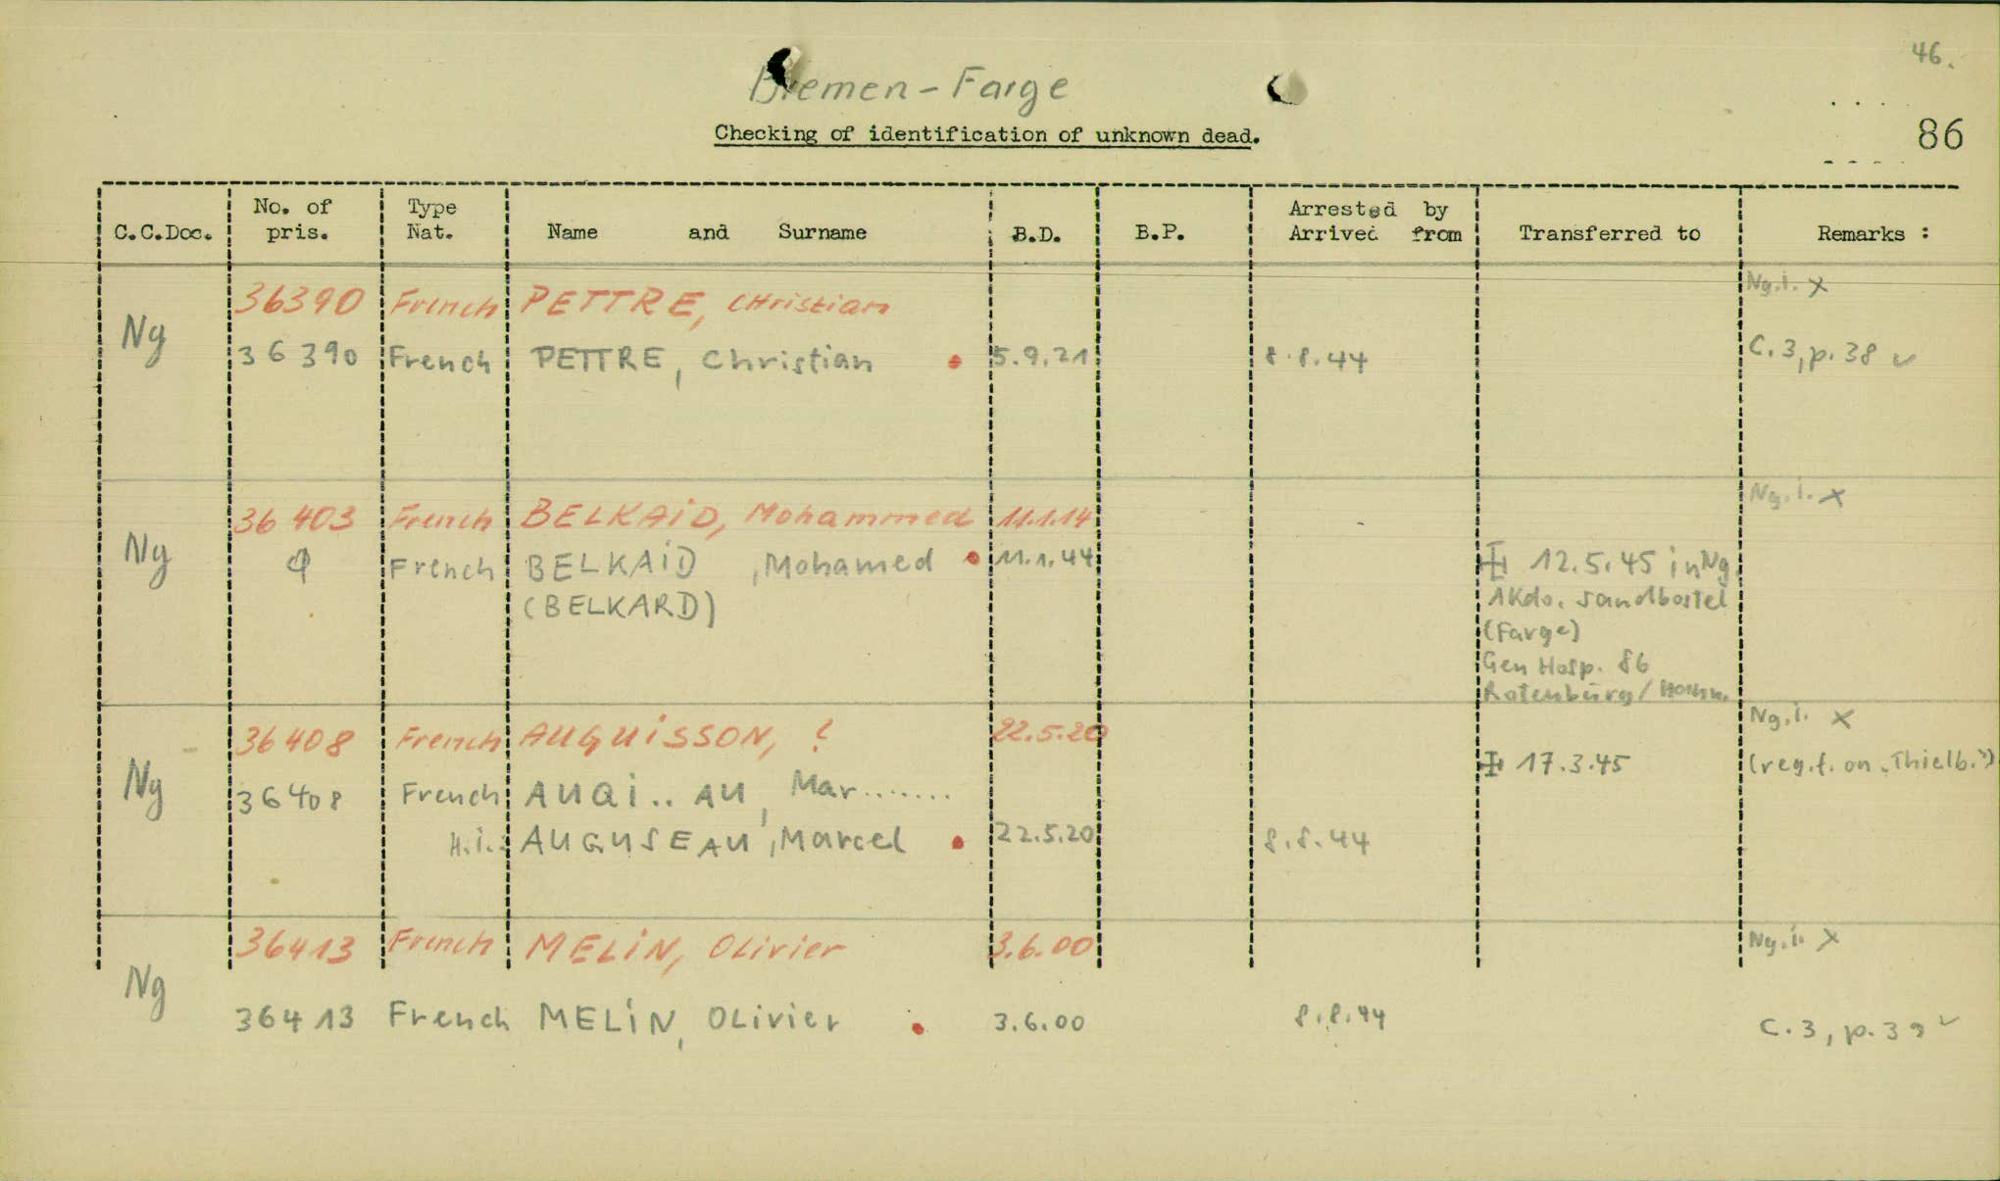 46.
Bremen - Farge
Checking of identification of unknown dead.
86
C.C.Doc. No. of pris. Type Nat. Name and Surname B.D. B.P. Arrested by Arrived from Transferred to Remarks :
Ng.i. x
36390 French PETTRE, Christian
Ng
36390 French PETTRE, Christian 5.9.21 8.8.44 C.3, p.38
Ng.i. x
36 403 French BELKAID, Mohammed 11.1.14
Ng
French BELKAID, Mohamed 11.1.44 12.5.45 in Ng
(BELKARD) AKdo. Sandbostel
(Farge)
Gen Hosp. 86
Rotenburg/
Ng.i. x
36408 French AUGUISSON, ? 22.5.20
17.3.45 (reg.f. on "Thielb.")
Ng
36408 French AUGI..AU, Mar.......
H.i.: AUGUSEAU, Marcel 22.5.20 8.8.44
36413 French MELIN, Olivier 3.6.00 Ng.i. x
Ng
36413 French MELIN, Olivier 3.6.00 8.8.44 C.3, p.39